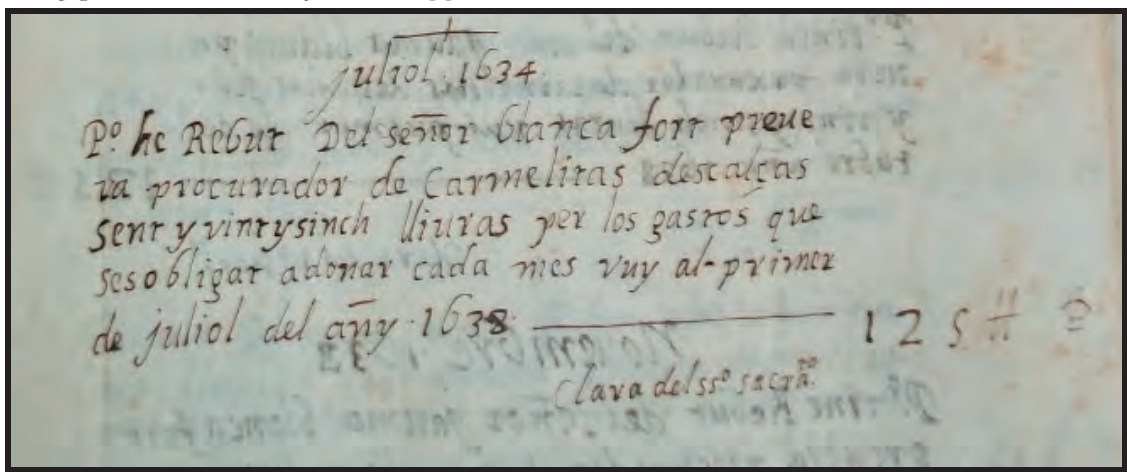 juliol 1634
Pº he Rebut Del señor blanca fort preve
va procurador de Carmelitas descalças
sent y vintysinch lliuras per los gastos que
sesobligat adonar cada mes vuy al primer
de juliol del añy 1638 125 ₶
Clara del ssº sacraᵗº